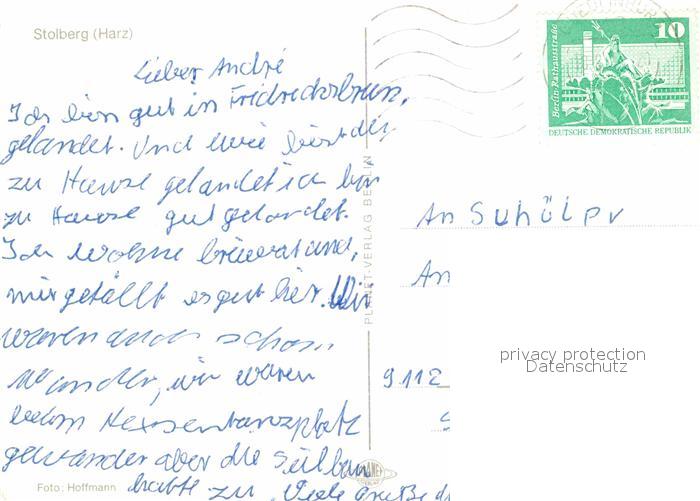 Stolberg (Harz)
Lieber André
Ich bin gut in Fridrichsbrun,
gelandet. Und wie bist du
zu Hause gelandet ich bin
zu Hause gut gelandet.
Ich wohne
mir gefällt es gut hier. Wir
waren auch schon
wander, wir waren
beim Hexsentanzplatz
gewander aber die Seilban
hatte zu. Viele Grüße
Foto: Hoffmann
PLANET-VERLAG BERLIN
10
Berlin, Rathausstraße
DEUTSCHE DEMOKRATISCHE REPUBLIK
An Suhölpr
An
9112
privacy protection
Datenschutz